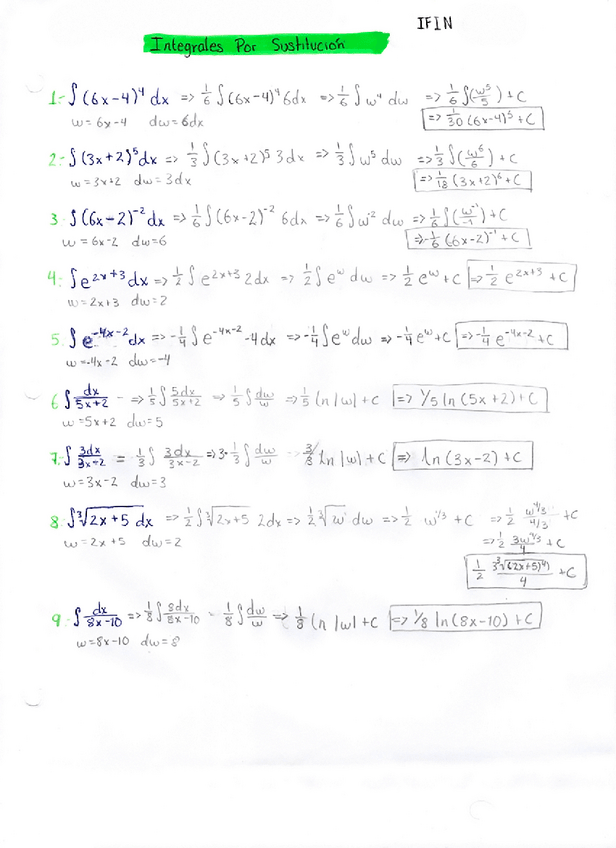 IFIN
Integrales Por Sustitución
1.- ∫(6x-4)⁴ dx => 1/6 ∫(6x-4)⁴ 6dx => 1/6 ∫ w⁴ dw => 1/6 ∫(w⁵/5) + C
w = 6x-4 dw = 6dx => 1/30 (6x-4)⁵ + C
2.- ∫(3x+2)⁵dx => 1/3 ∫(3x+2)⁵ 3dx => 1/3 ∫ w⁵ dw => 1/3 ∫(w⁶/6) + C
w = 3x+2 dw = 3dx => 1/18 (3x+2)⁶ + C
3. ∫(6x-2)⁻² dx => 1/6 ∫(6x-2)⁻² 6dx => 1/6 ∫ w⁻² dw => 1/6 ∫(w⁻¹/-1) + C
w = 6x-2 dw=6 => -1/6 (6x-2)⁻¹ + C
4.- ∫e²ˣ⁺³ dx => 1/2 ∫ e²ˣ⁺³ 2dx => 1/2 ∫ eʷ dw => 1/2 eʷ + C => 1/2 e²ˣ⁺³ + C
w = 2x+3 dw = 2
5. ∫e⁻⁴ˣ⁻² dx => -1/4 ∫ e⁻⁴ˣ⁻² -4dx => -1/4 ∫eʷ dw => -1/4 eʷ + C => -1/4 e⁻⁴ˣ⁻² + C
w = -4x-2 dw = -4
6 ∫ dx/5x+2 - => 1/5 ∫ 5dx/5x+2 => 1/5 ∫ dw/w => 1/5 ln |w| + C => 1/5 ln (5x+2) + C
w = 5x+2 dw = 5
7.- ∫ 3dx/3x-2 = 1/3 ∫ 3dx/3x-2 => 3· 1/3 ∫ dw/w => 3/3 ln |w| + C => ln (3x-2) + C
w = 3x-2 dw = 3
8. ∫∛2x+5 dx => 1/2 ∫ ∛2x+5 2dx => 1/2 ∛w dw => 1/2 w^1/3 + C => 1/2 w^4/3 / 4/3 + C
w = 2x+5 dw = 2 => 1/2 3w^4/3 / 4 + C
1/2 3∛(2x+5)⁴) / 4 + C
9. ∫ dx/8x-10 => 1/8 ∫ 8dx/8x-10 - 1/8 ∫ dw/w => 1/8 ln |w| + C => 1/8 ln (8x-10) + C
w = 8x-10 dw = 8